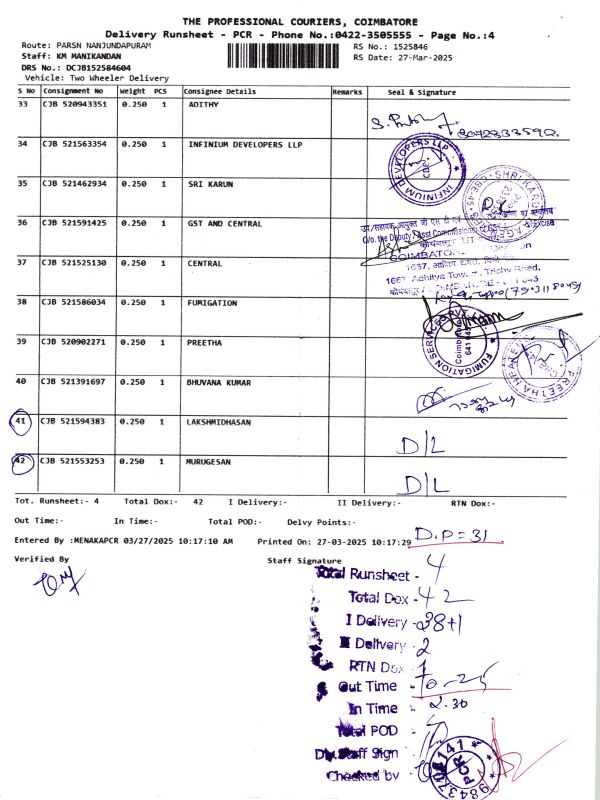 THE PROFESSIONAL COURIERS, COIMBATORE
Delivery Runsheet - PCR - Phone No.:0422-3505555 - Page No.:4
Route: PARSN NANJUNDAPURAM
RS No.: 1525846
Staff: KM MANIKANDAN
RS Date: 27-Mar-2025
DRS No.: DCJB152584604
Vehicle: Two Wheeler Delivery
S No Consignment No Weight PCS Consignee Details Remarks Seal & Signature
33 CJB 520943351 0.250 1 ADITHY
34 CJB 521563354 0.250 1 INFINIUM DEVELOPERS LLP
INFINIUM DEVELOPERS LLP
CBE.
35 CJB 521462934 0.250 1 SRI KARUN
36 CJB 521591425 0.250 1 GST AND CENTRAL
37 CJB 521525130 0.250 1 CENTRAL
1667, Adhitya Towers, Trichy Road,
38 CJB 521586034 0.250 1 FUMIGATION
FUMIGATION SERVICES
Coimbatore
39 CJB 520902271 0.250 1 PREETHA
40 CJB 521391697 0.250 1 BHUVANA KUMAR
41 CJB 521594383 0.250 1 LAKSHMIDHASAN
D/L
42 CJB 521553253 0.250 1 MURUGESAN
D/L
Tot. Runsheet:- 4 Total Dox:- 42 I Delivery:- II Delivery:- RTN Dox:-
Out Time:- In Time:- Total POD:- Delvy Points:-
D.P=31
Entered By :MENAKAPCR 03/27/2025 10:17:10 AM Printed On: 27-03-2025 10:17:29
Verified By Staff Signature
Total Runsheet - 4
Total Dox - 42
I Delivery - 38+1
II Delivery - 2
RTN Dox - 1
Out Time - 10-25
In Time - 2.30
Total POD -
Dly.Staff Sign -
Checked by -
PCR